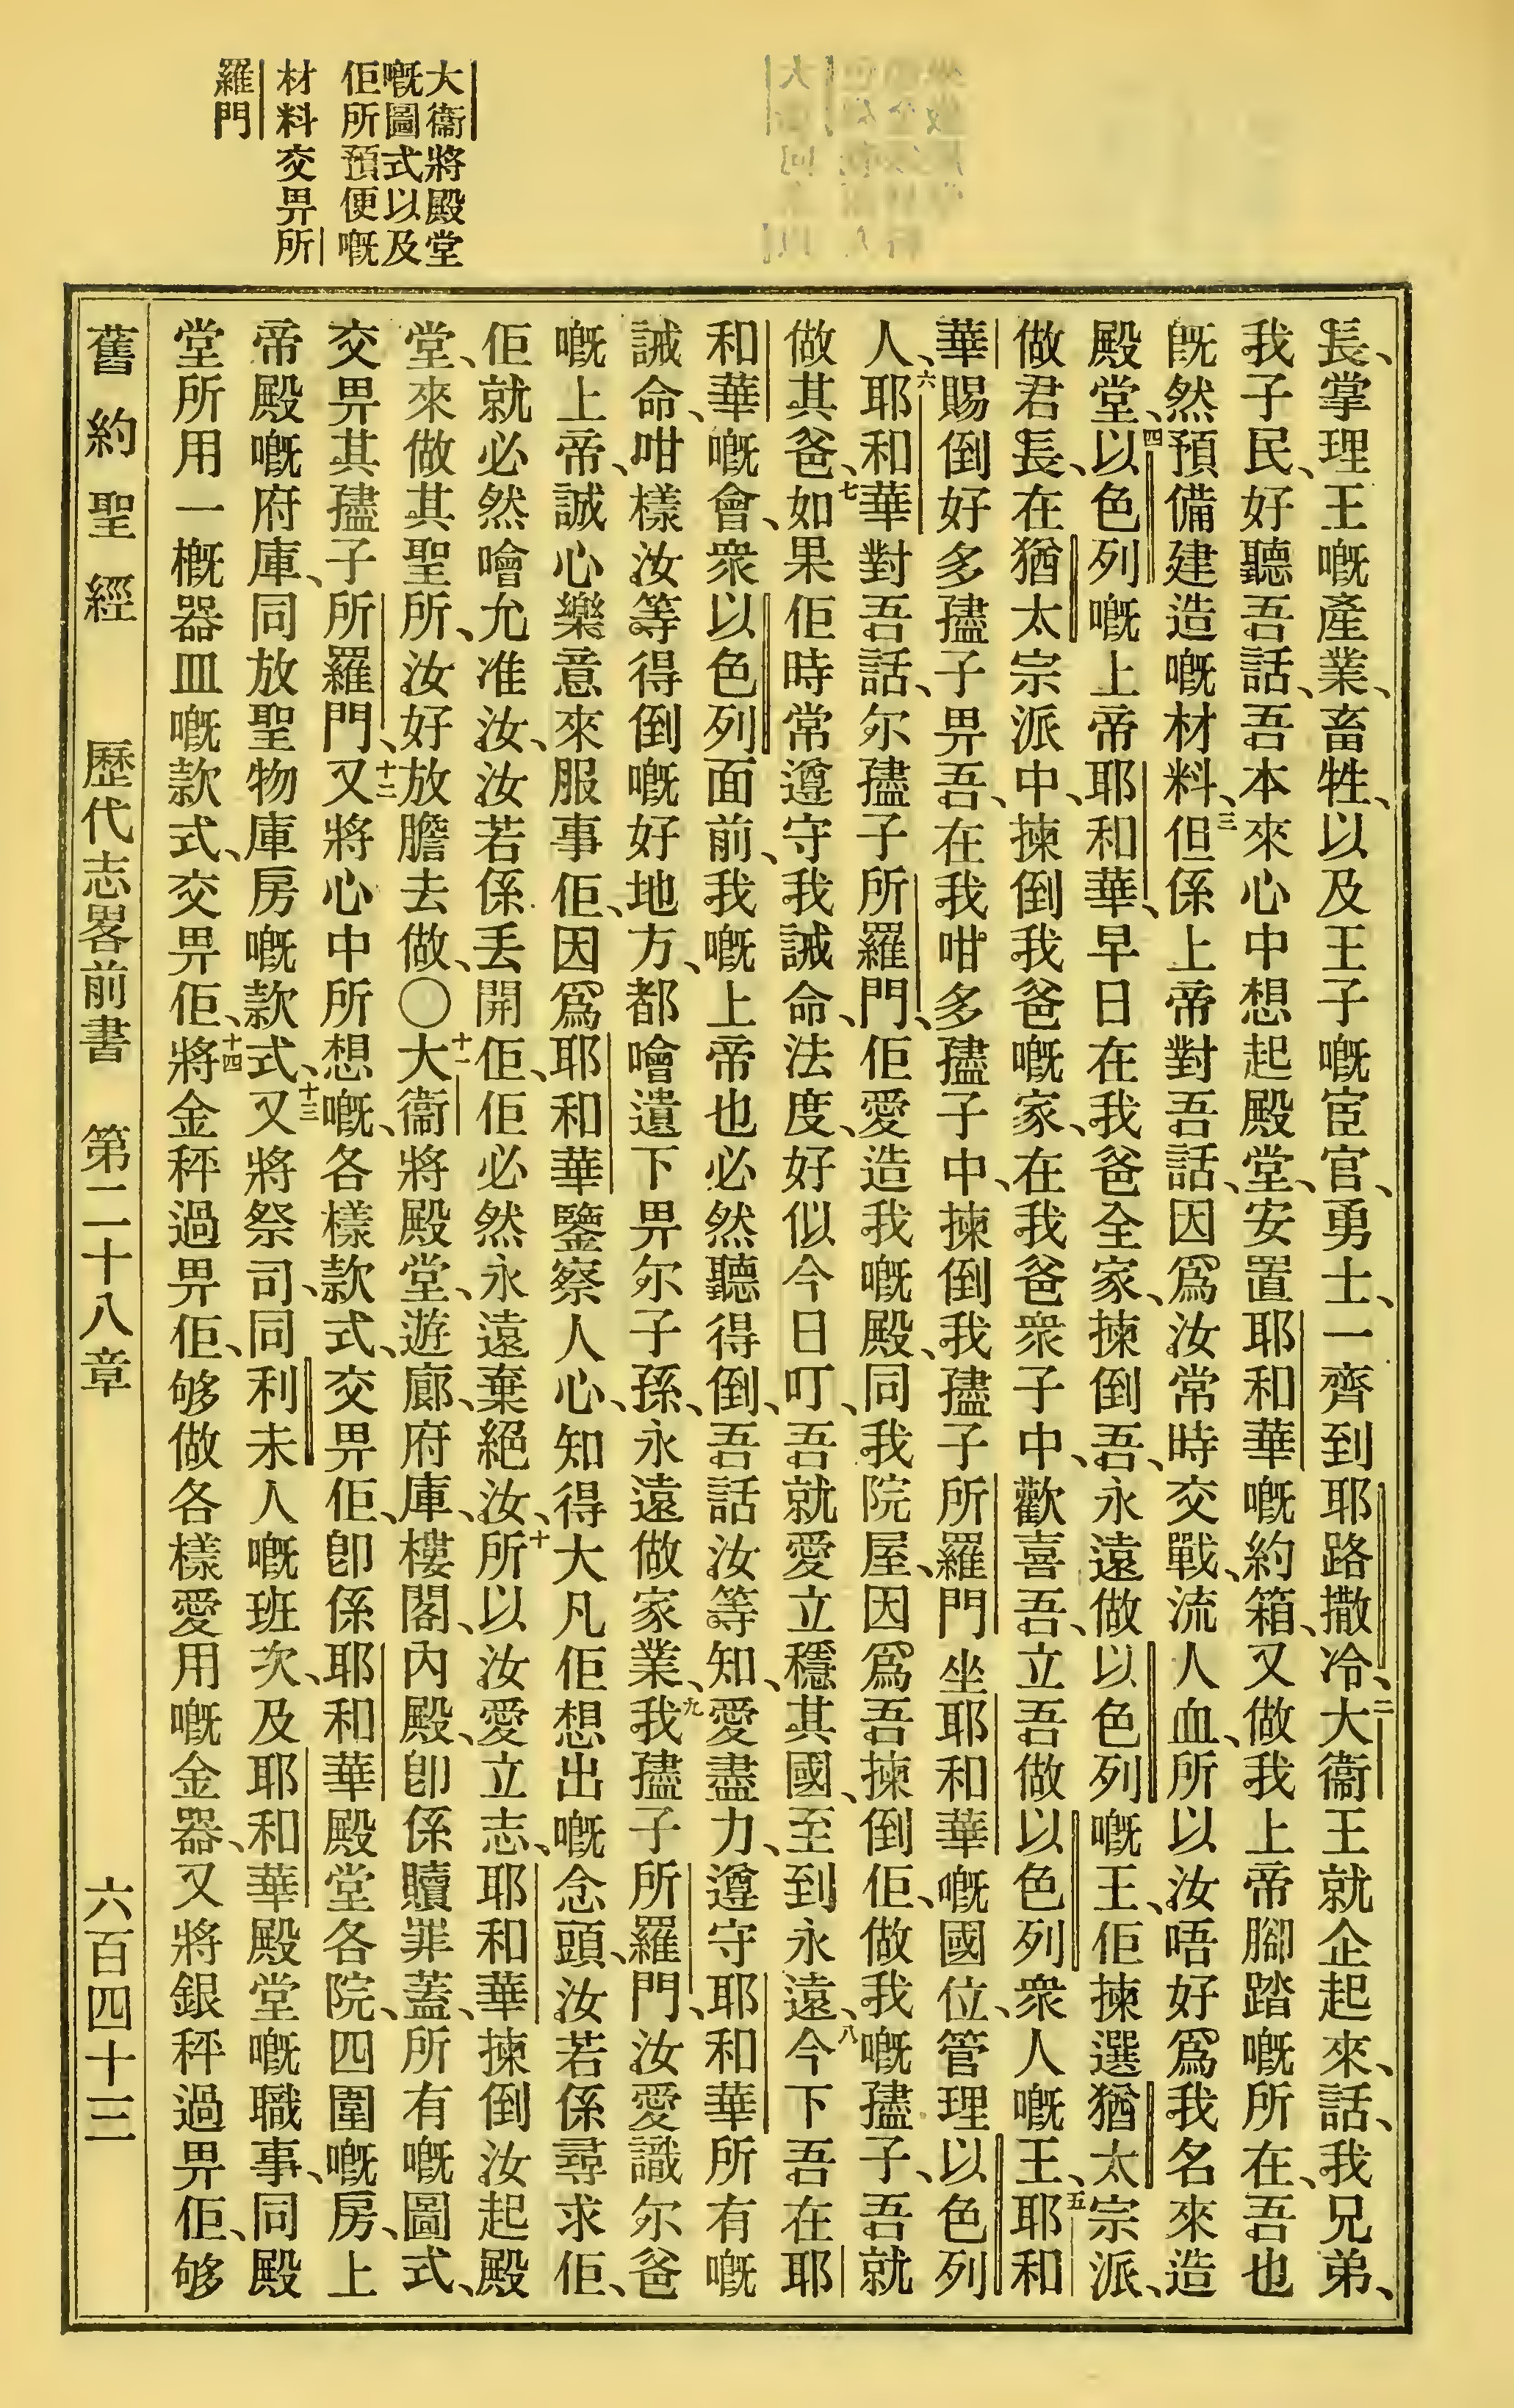 大衞將殿堂
嘅圖式以及
佢所預便嘅
材料交畀所
羅門
長、掌理王嘅產業、畜牲、以及王子嘅宦官、勇士、一齊到耶路撒冷、二大衞王就企起來、話、我兄弟、
我子民、好聽吾話、吾本來心中想起殿堂、安置耶和華嘅約箱、又做我上帝腳踏嘅所在、吾也
旣然預備建造嘅材料、三但係上帝對吾話、因爲汝常時交戰、流人血、所以汝唔好爲我名來造
殿堂、四以色列嘅上帝耶和華、早日在我爸全家、揀倒吾、永遠做以色列嘅王、佢揀選猶太宗派、
做君長、在猶太宗派中、揀倒我爸嘅家、在我爸衆子中、歡喜吾、立吾做以色列衆人嘅王、五耶和
華賜倒好多孻子畀吾、在我咁多孻子中、揀倒我孻子所羅門坐耶和華嘅國位、管理以色列
人、六耶和華對吾話、尔孻子所羅門、佢愛造我嘅殿、同我院屋、因爲吾揀倒佢、做我嘅孻子、吾就
做其爸、七如果佢時常遵守我誡命、法度、好似今日叮、吾就愛立穩其國、至到永遠、八今下吾在耶
和華嘅會、衆以色列面前、我嘅上帝也必然聽得倒、吾話汝等知、愛盡力、遵守耶和華所有嘅
誡命、咁樣汝等得倒嘅好地方、都噲遺下畀尔子孫、永遠做家業、九我孻子所羅門、汝愛識尔爸
嘅上帝、誠心樂意來服事佢、因爲耶和華鑒察人心、知得大凡佢想出嘅念頭、汝若係尋求佢、
佢就必然噲允准汝、汝若係丢開佢、佢必然永遠棄絕汝、十所以汝愛立志、耶和華揀倒汝起殿
堂、來做其聖所、汝好放膽去做、〇十一大衞將殿堂、遊廊、府庫、樓閣、內殿、卽係贖罪蓋、所有嘅圖式、
交畀其孻子所羅門、十二又將心中所想嘅、各樣款式、交畀佢、卽係耶和華殿堂各院、四圍嘅房、上
帝殿嘅府庫、同放聖物庫房嘅款式、十三又將祭司、同利未人嘅班次、及耶和華殿堂嘅職事、同殿
堂所用一槪器皿嘅款式、交畀佢、十四將金秤過畀佢、够做各樣愛用嘅金器、又將銀秤過畀佢、够
舊約聖經　歷代志畧前書　第二十八章　六百四十三